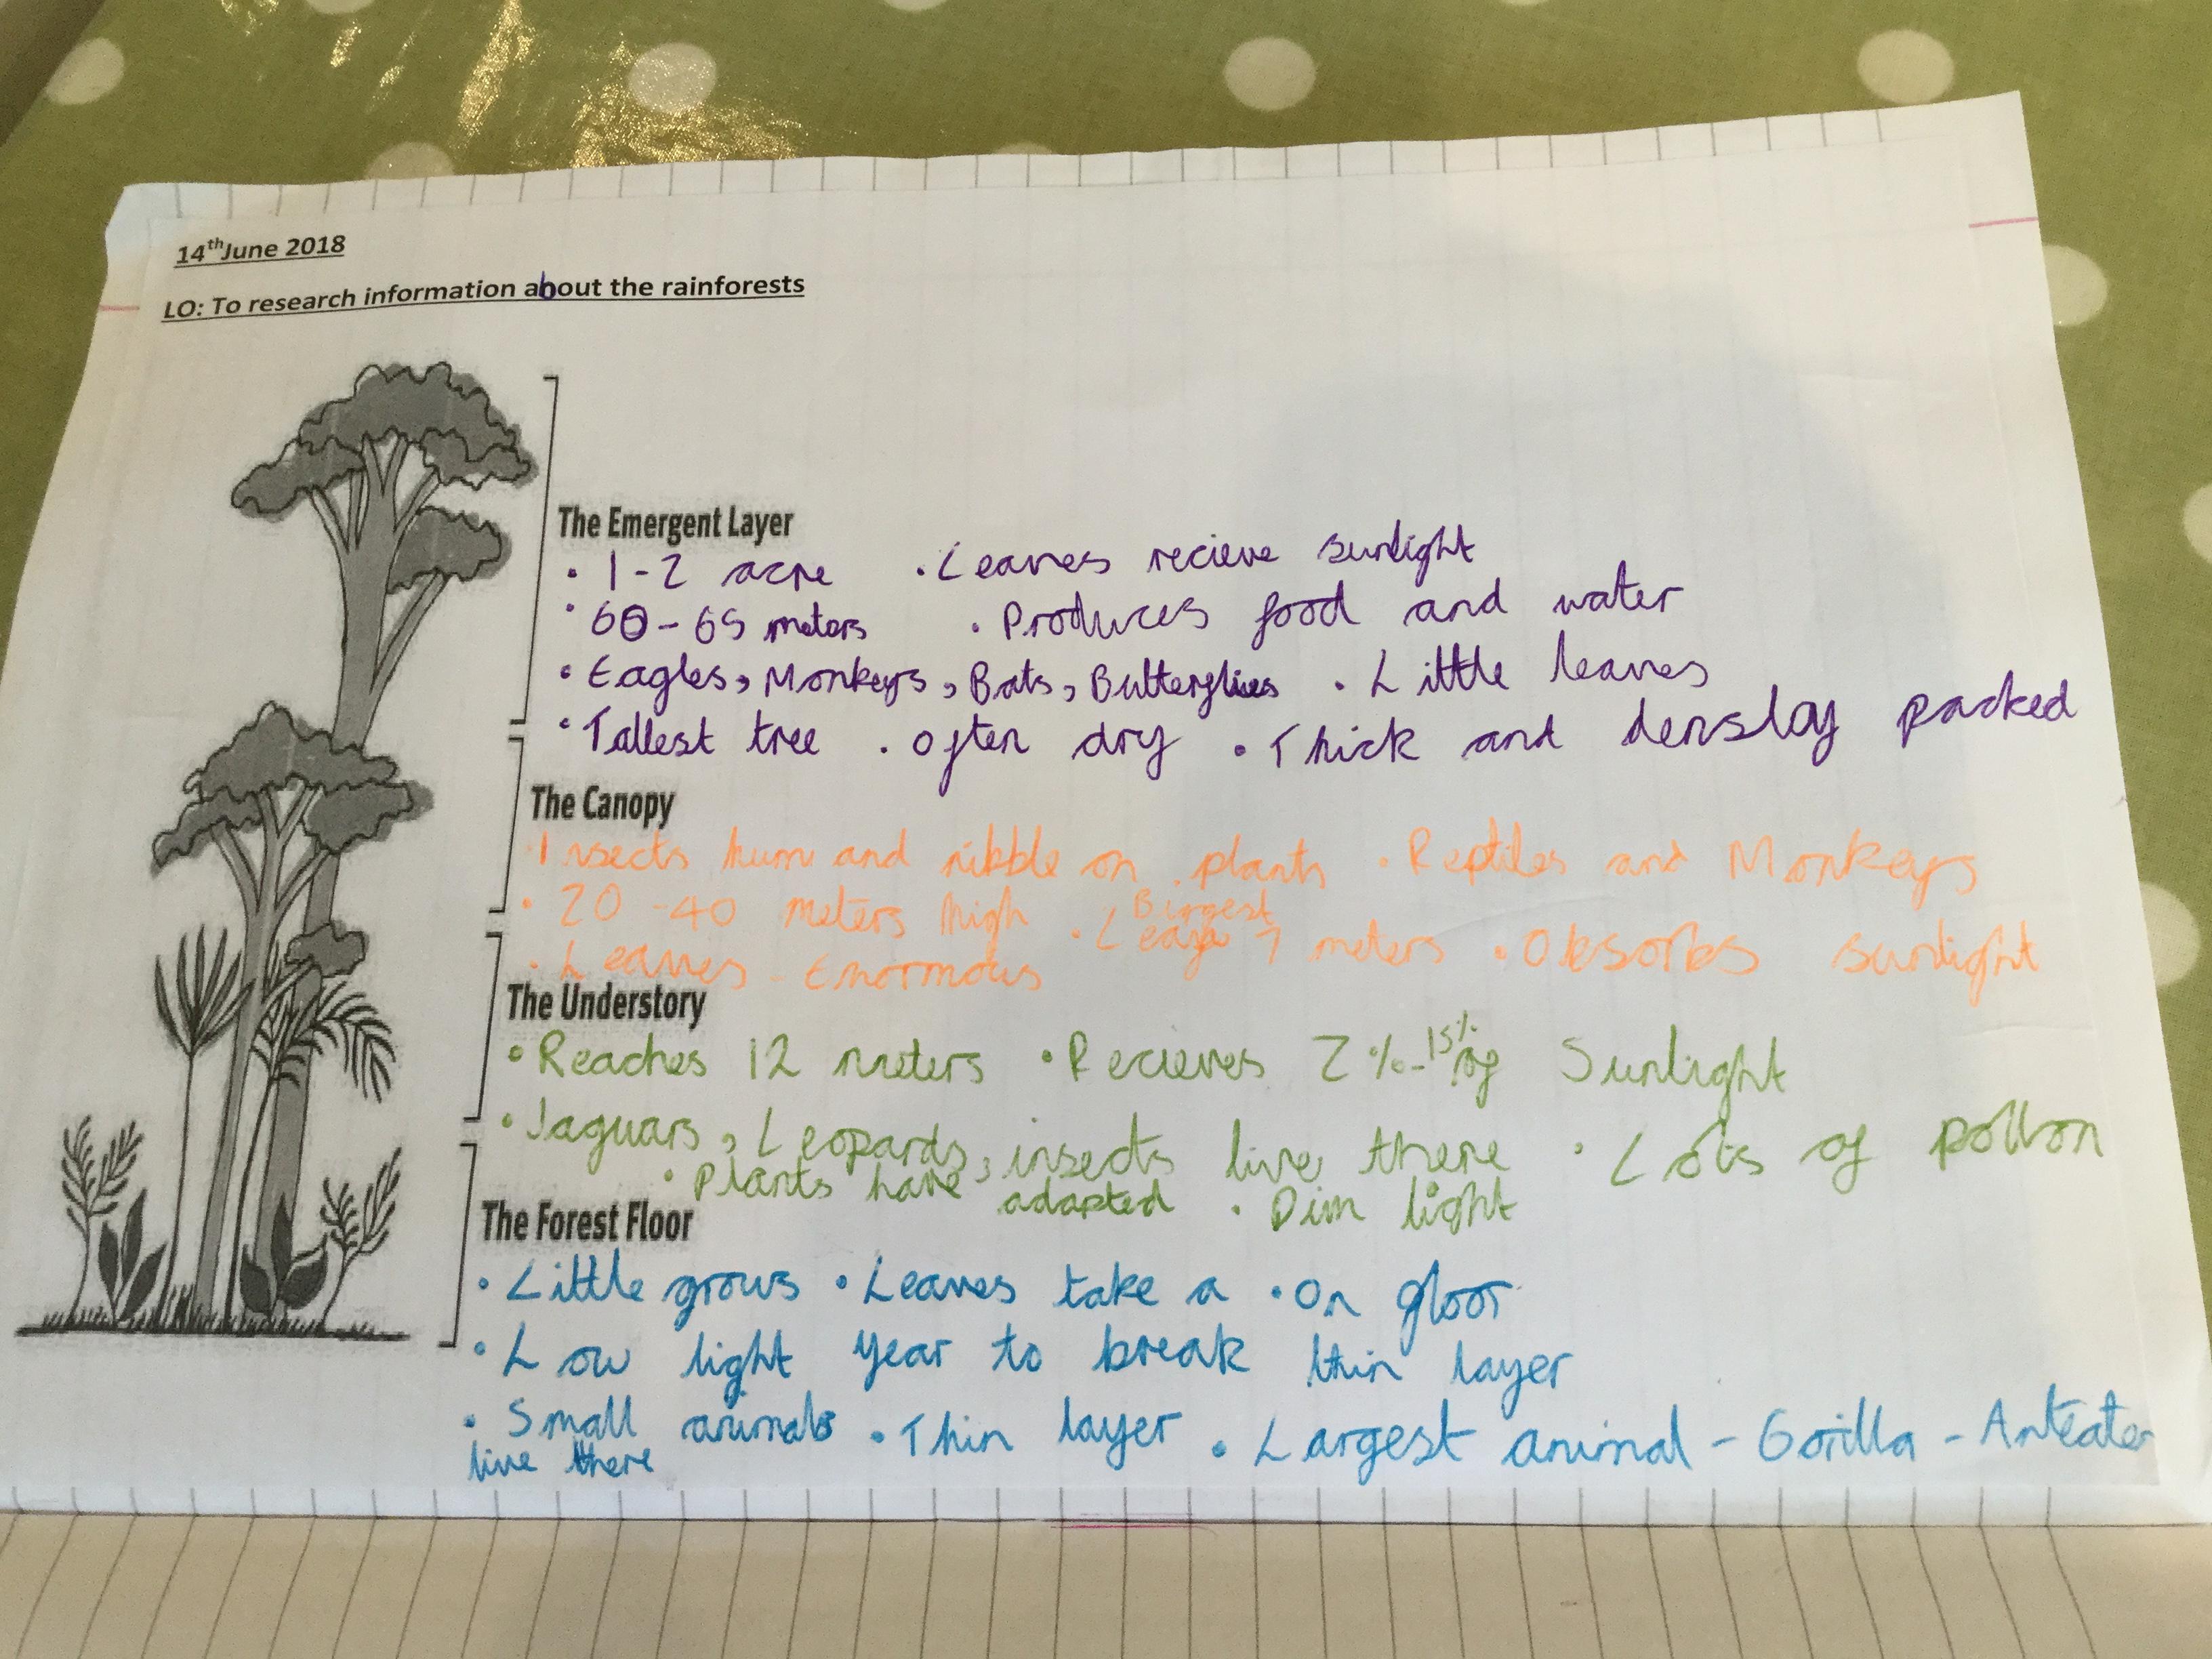 14thJune 2018
LO: To research information about the rainforests
The Emergent Layer
• 1-2 acre • Leaves recieve sunlight
• 60-65 meters • Produces food and water
• Eagles, Monkeys, Bats, Butterflies • Little leaves
• Tallest tree • often dry • Thick and denslay packed
The Canopy
• Insects hum and nibble on plants • Reptiles and Monkeys
• 20-40 meters high • Biggest Leaf 7 meters • Obsorbs sunlight
• Leaves - Enormous
The Understory
• Reaches 12 meters • Recieves 2%-15% of Sunlight
• Jaguars, Leopards, insects live there • Lots of pollon
• Plants have adapted • Dim light
The Forest Floor
• Little grows • Leaves take a • On floor
• Low light year to break thin layer
• Small animals • Thin layer • Largest animal - Gorilla - Anteater
live there